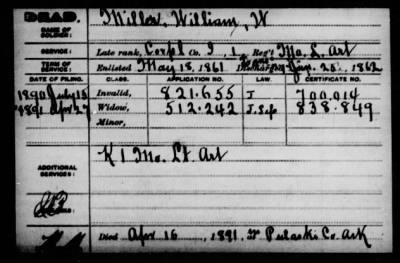 DEAD.
NAME OF SOLDIER: Miller, William, W
SERVICE: Late rank, Corpl Co. I, 1, Reg't Mo. L. Art
TERM OF SERVICE: Enlisted May 18, 1861 Jan. 20, 1862
DATE OF FILING. CLASS. APPLICATION NO. LAW. CERTIFICATE NO.
1890 July 15 Invalid, 821.655 J 700.014
1891 Apr 27 Widow, 512.242 838.849
Minor,
ADDITIONAL SERVICES: K 1 Mo. Lt. Art
Died Apr 16, 1891, Pulaski Co. Ark